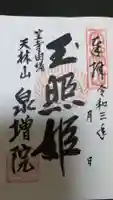 奉拝
令和三年
月
日
玉照姫
笠寺由緒
天林山
泉増院